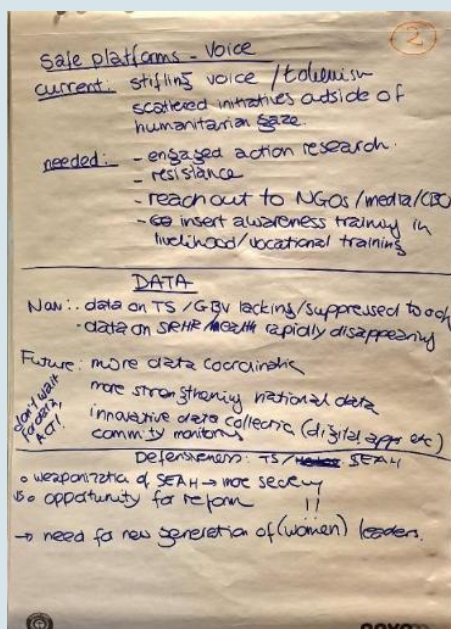 2
Safe platforms - Voice
current: stifling voice / tokenism
scattered initiatives outside of
humanitarian gaze.
needed: - engaged action research.
- resistance
- reach out to NGOs/media/CBO
- insert awareness training in
livelihood/vocational training
DATA
Now: . data on TS/GBV lacking/suppressed to
- data on SRHR/health rapidly disappearing
Future: more data coordination
more strengthening national data
innovative data collection (digital apps etc)
commity monitoring
don't wait
for data,
ACT!
Defensiveness: TS/ SEAH
o weaponization of SEAH → more secrecy
vs o opportunity for reform !!
→ need for new generation of (women) leaders.